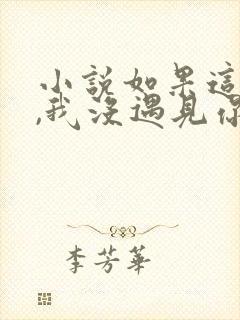 小說如果這
,我沒遇見你
李芳華